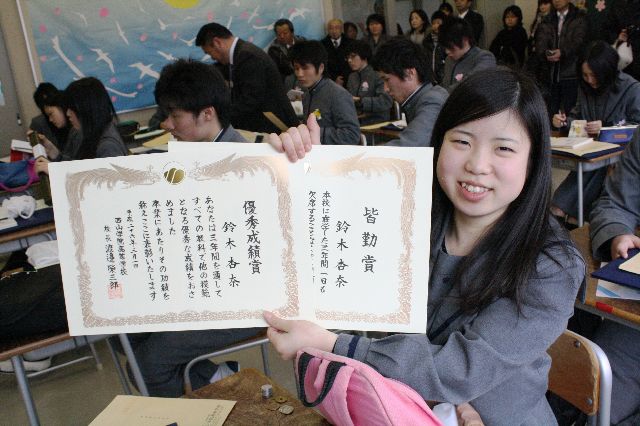 優秀成績賞
鈴木杏奈
あなたは三年間を通して
すべての教科で他の模範
となる優秀な成績をおさ
めました
卒業にあたりその功績を
称えここに表彰いたします
西山学院高等学校
校長
皆勤賞
鈴木杏奈
本校に在学した三年間一日も